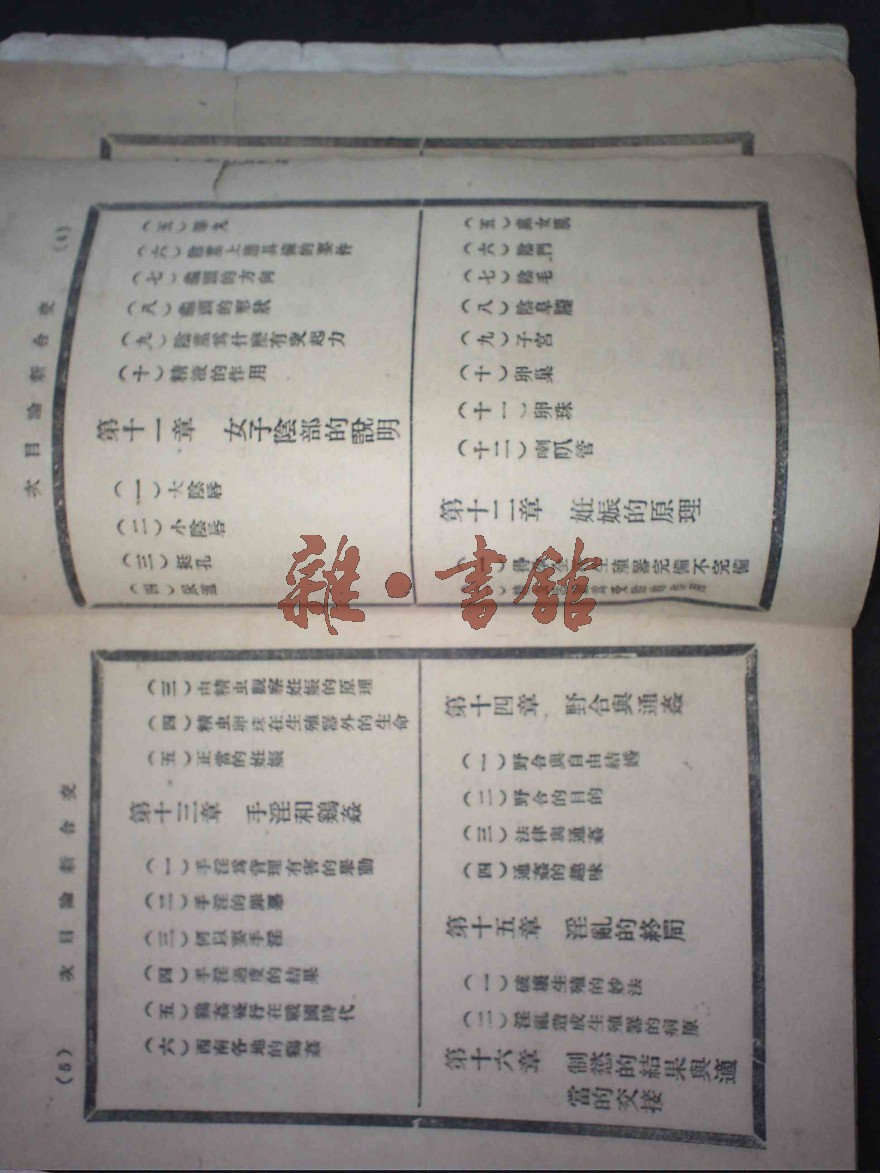 交合新論目次
(4)
(五)睾丸
(六)陰莖上應具備的要件
(七)龜頭的方向
(八)龜頭的形狀
(九)陰莖爲什麼有突起力
(十)精液的作用
第十一章 女子陰部的說明
(一)大陰唇
(二)小陰唇
(三)挺孔
(四)尿道
(五)處女膜
(六)陰門
(七)陰毛
(八)陰阜
(九)子宮
(十)卵巢
(十一)卵珠
(十二)喇叭管
第十二章 妊娠的原理
殖器完備不完備
交合新論目次
(5)
(三)由精虫觀察妊娠的原理
(四)精虫卵珠在生殖器外的生命
(五)正當的妊娠
第十三章 手淫和鷄姦
(一)手淫爲背理有害的舉動
(二)手淫的罪惡
(三)何以要手淫
(四)手淫過度的結果
(五)鷄姦盛行在戰國時代
(六)西南各地的鷄姦
第十四章 野合與通姦
(一)野合與自由結婚
(二)野合的目的
(三)法律與通姦
(四)通姦的趣味
第十五章 淫亂的終局
(一)破壞生殖的妙法
(二)淫亂造成生殖器的病原
第十六章 制慾的結果與適
當的交接
雜·書館